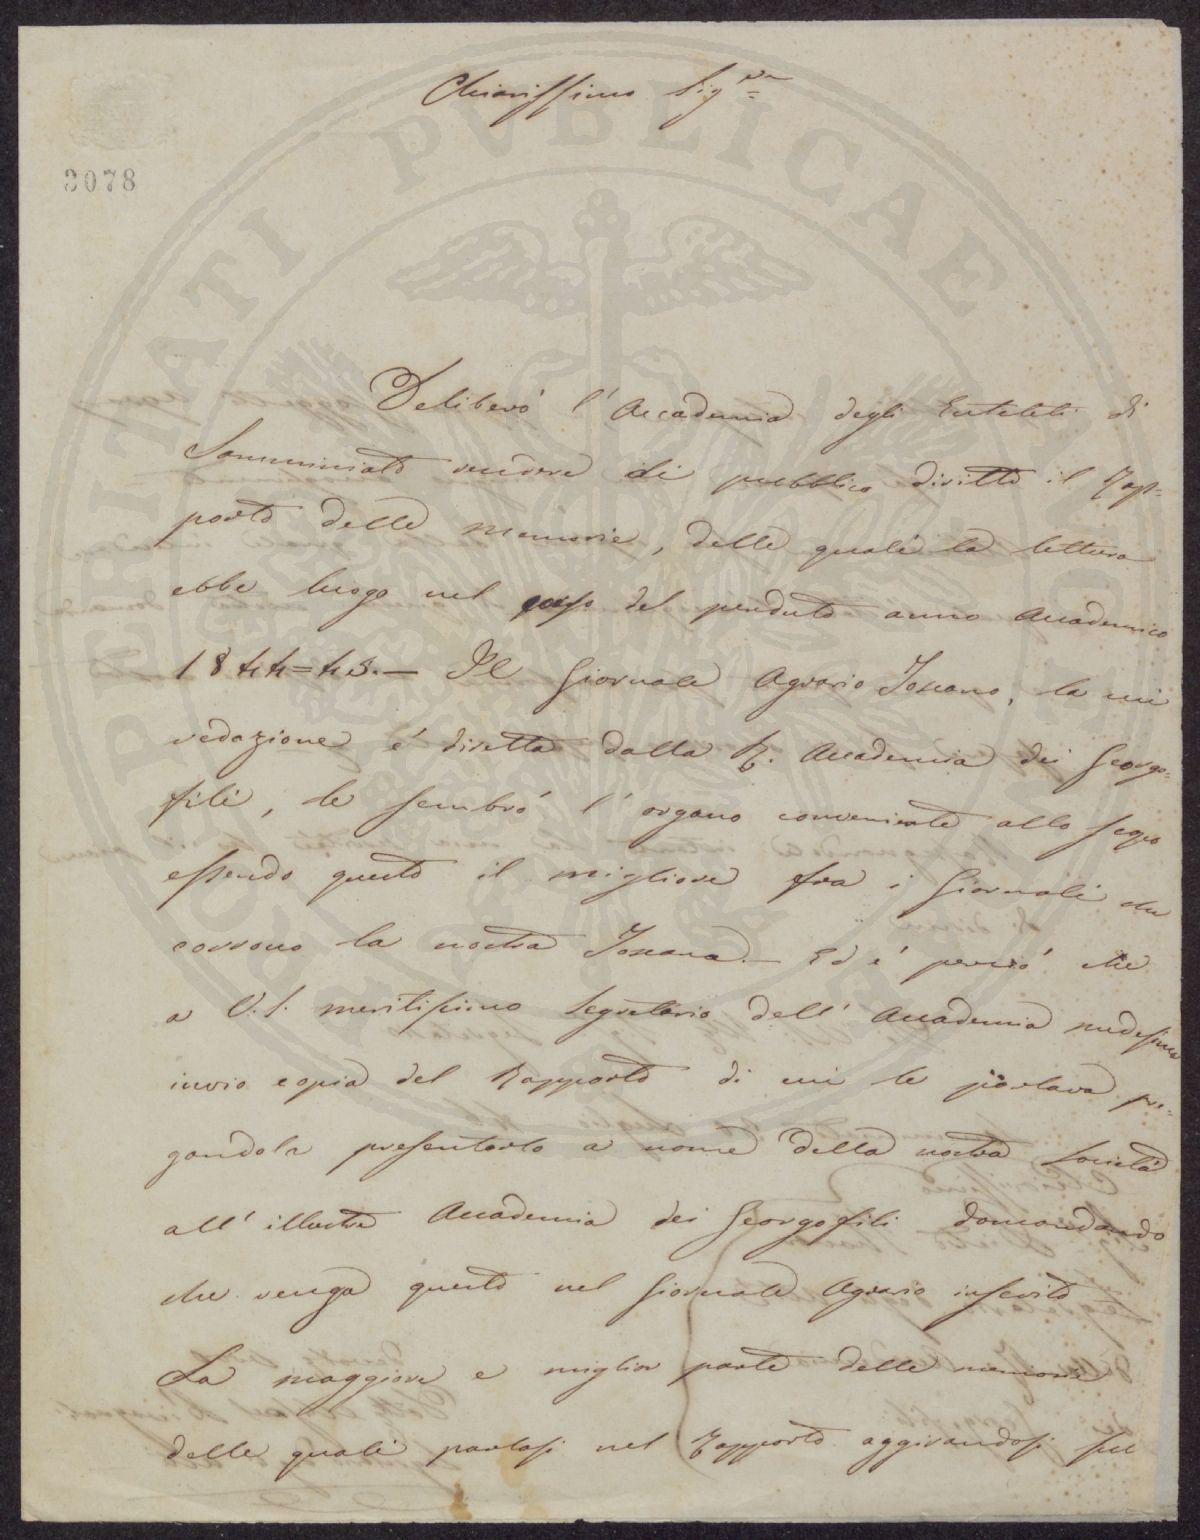 Chiarissimo Sig.re
3078
Deliberò l'Accademia degli Euteleti di
Samminiato rendere di pubblico diritto il Rap=
porto delle memorie, delle quali la lettura
ebbe luogo nel corso del perduto anno Accademico
1844=45.— Il Giornale Agrario Toscano, la cui
redazione é diretta dalla R. Accademia dei Georgo=
fili, le sembró l'organo conveniente allo scopo
essendo questo il migliore fra i Giornali che
corrono la nostra Toscana.— Ed é perció che
a V.S. meritissimo Segretario dell'Accademia medesima
invio copia del Rapporto di cui le parlava pre=
gandola presentarlo a nome della nostra Società
all'illustre Accademia dei Georgofili domandando
che venga questo nel Giornale Agrario inserito
La maggiore e miglior parte delle memorie
delle quali parlasi nel Rapporto aggirandosi sul